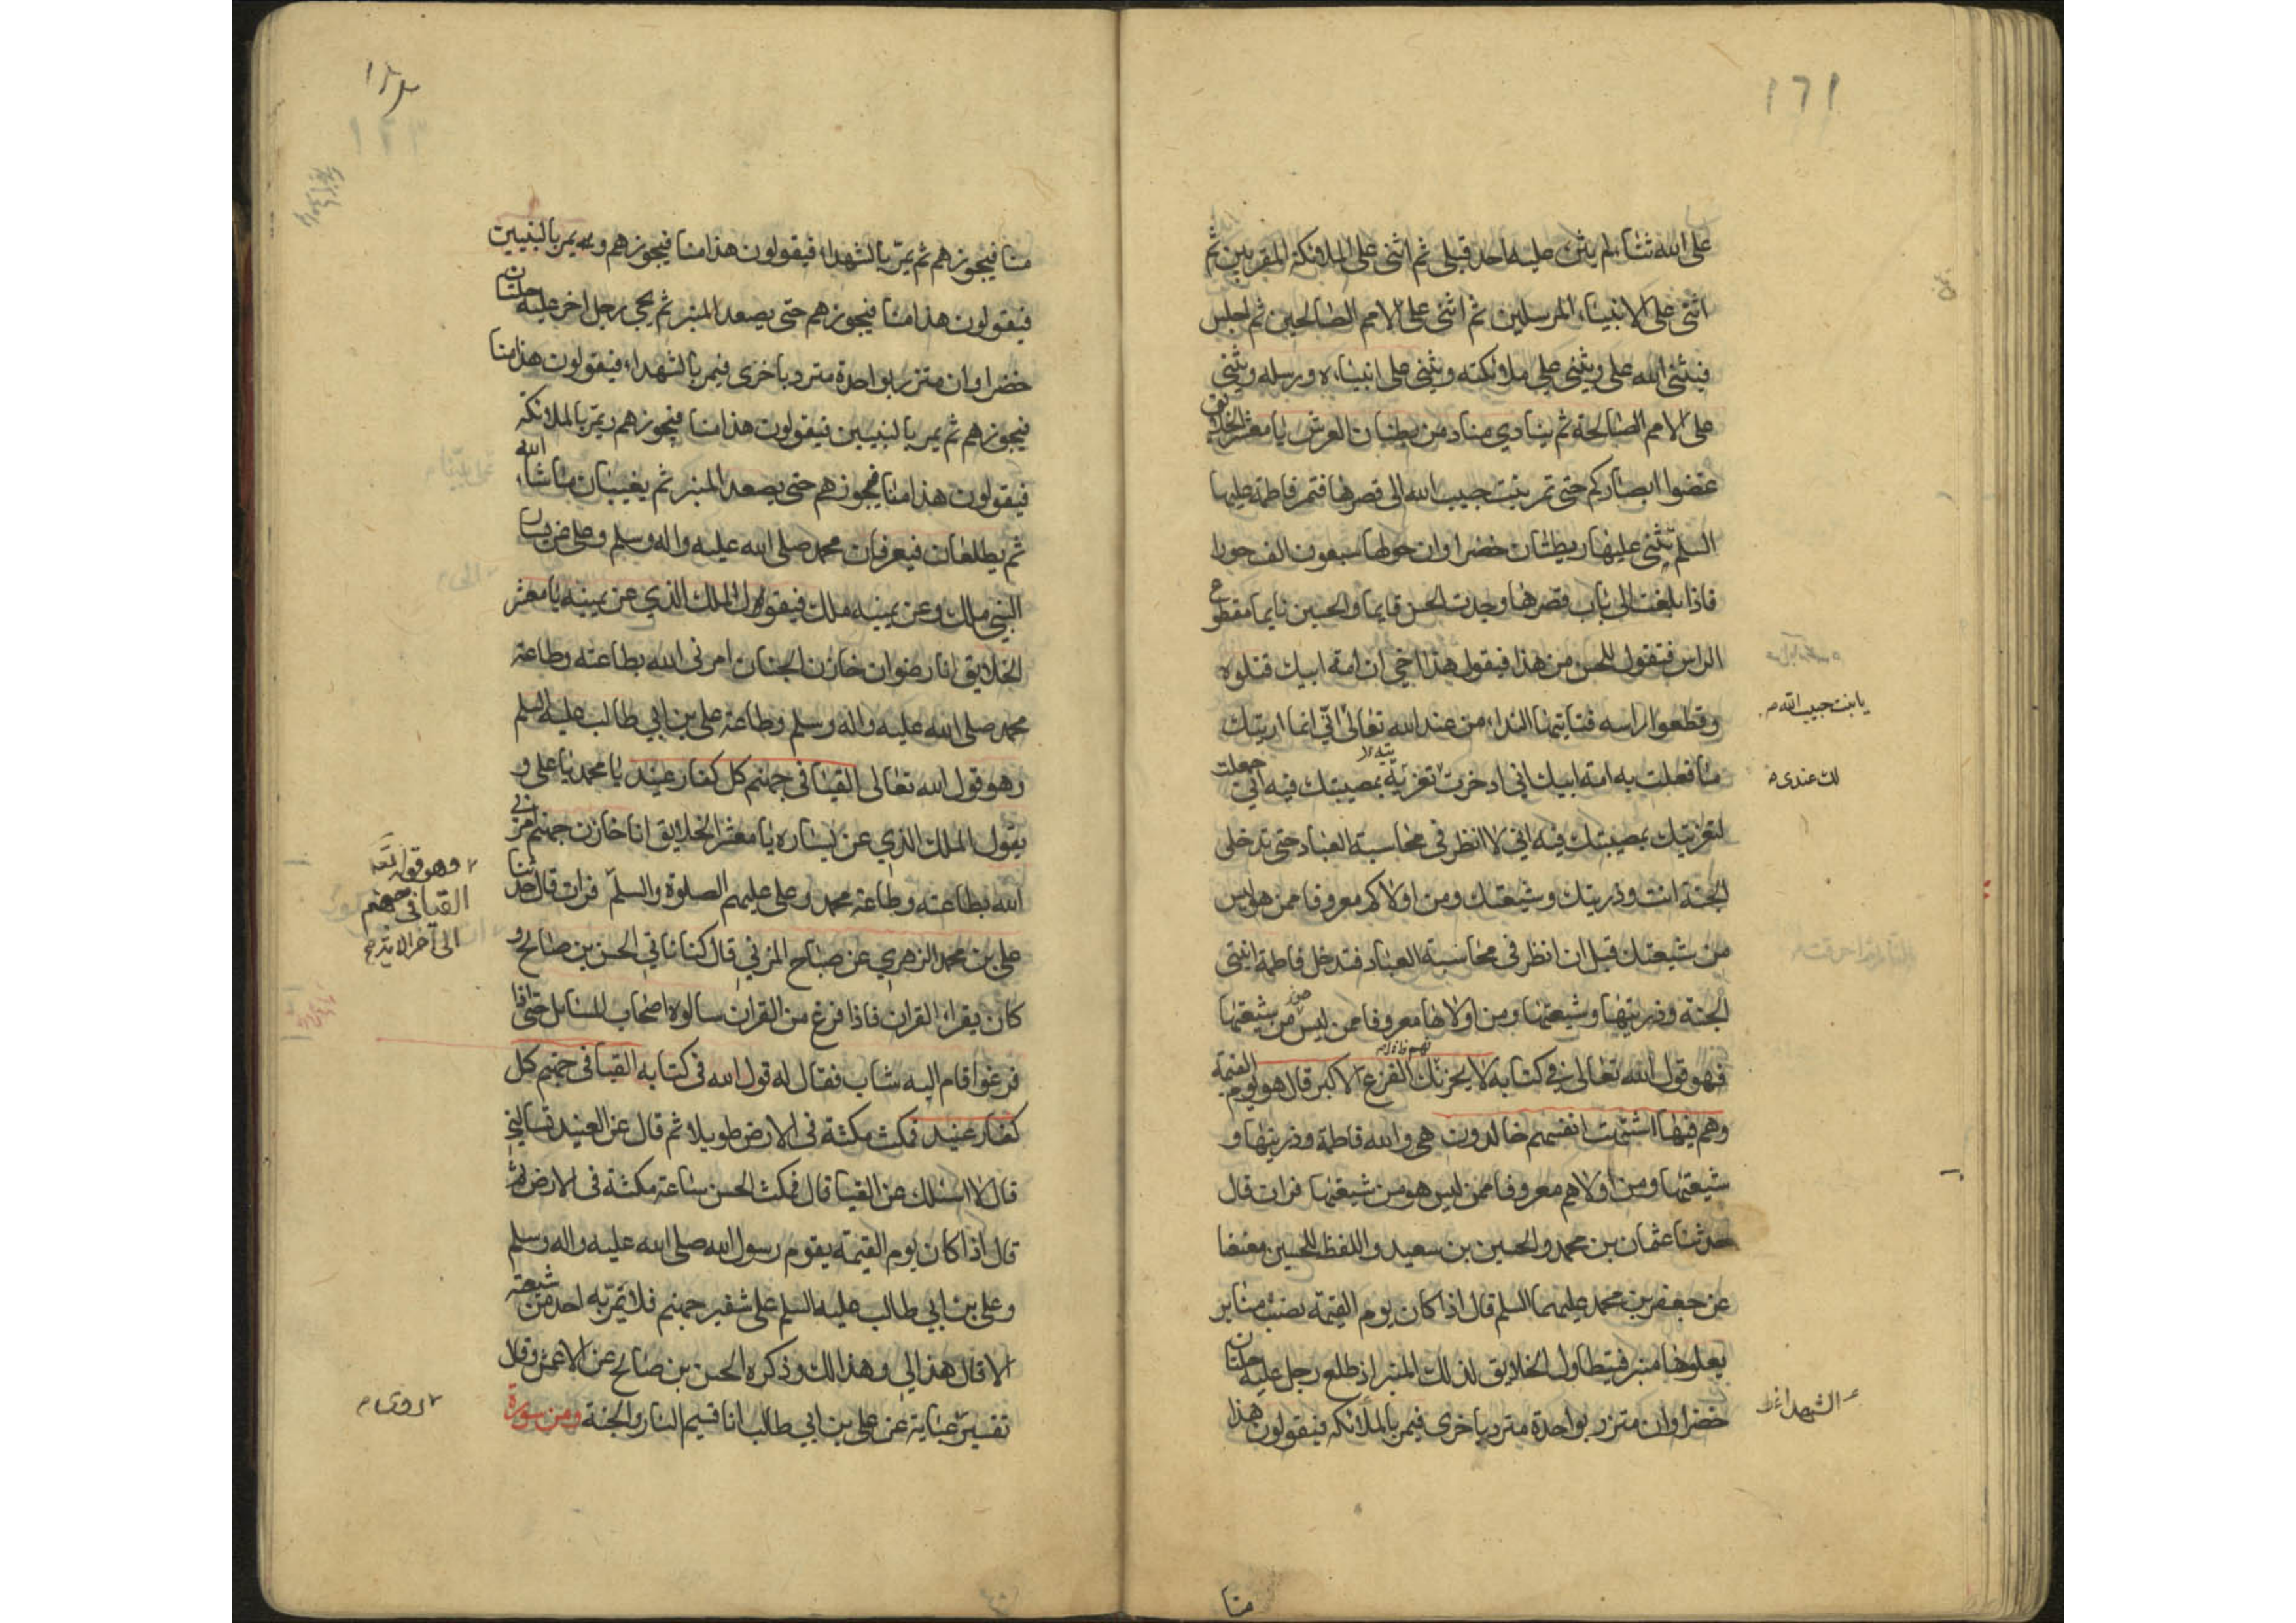 ١٦١
على الله ثناء لم يثن عليه احد قبلى ثم اثنى على الملائكة المقربين ثم
اثنى على الانبياء المرسلين ثم اثنى على الامم الصالحين ثم اجلس
فيثنى الله على ويثنى على ملائكته ويثنى على انبياءه ورسله ويثنى
على الامم الصالحة ثم ينادي مناد من بطنان العرش يا معشر الخلايق
غضوا ابصاركم حتى تمر بنت حبيب الله الى قصرها فتمر فاطمة عليها
السلم يثنى عليها ريطتان خضراوان حولها سبعون الف حورا
فاذا بلغت الى باب قصرها وجدت الحسن قايما والحسين نايما مقطوع
الراس فتقول للحسن من هذا فيقول هذا اخي ان امة ابيك قتلوه
وقطعوا راسه فتاتيها النداء من عند الله تعالى انى انما اريتك
يا بنت حبيب الله
ما فعلت به امة ابيك انى ادخرت تعزية بمصيبتك فيه انى جعلت
لك عندى
لتعزيتك بمصيبتك فيه انى لا انظر فى محاسبة العباد حتى تدخلى
الجنة انت وذريتك وشيعتك ومن اولاكم معروفا ممن هو ليس
من شيعتك قبل ان انظر فى محاسبة العباد فتدخل فاطمة ابنتى
الجنة وذريتها وشيعتها ومن اولاها معروفا ممن ليس من شيعتها
فهو قول الله تعالى فى كتابه لا يحزنك الفزع الاكبر قال هو يوم القيمة
وهم فيها اشتهت انفسهم خالدون هى والله فاطمة وذريتها و
شيعتها ومن اولاهم معروفا ممن ليس هو من شيعتها فرات قال
حدثنا عثمان بن محمد والحسين بن سعيد واللفظ للحسين معنعنا
عن جعفر بن محمد عليهما السلم قال اذا كان يوم القيمة نصب منابر
يعلوها منبر فيتطاول الخلايق لذلك المنبر اذ طلع رجل عليه حلتان
خضراوان متزر بواحدة متردباخرى فيمر بالملائكه فيقولون هذا
الشهداء
منا
منا فيجوزهم ثم يمر بالشهداء فيقولون هذا منا فيجوزهم ويمر بالنبيين
فيقولون هذا منا فيجوزهم حتى يصعد المنبر ثم يجى رجل اخر عليه حلتان
خضراوان متزر بواحدة متردباخرى فيمر بالشهداء فيقولون هذا منا
فيجوزهم ثم يمر بالنبيين فيقولون هذا منا فيجوزهم ويمر بالملائكة
فيقولون هذا منا فيجوزهم حتى يصعد المنبر ثم يغيبان ما شاء الله
ثم يطلعان فيعرفان محمد صلى الله عليه واله وسلم وعلى عن يسار
النبي ملك وعن يمينه ملك فيقول الملك الذي عن يمينه يا معشر
الخلايق انا رضوان خازن الجنان امرنى الله بطاعته وطاعة
محمد صلى الله عليه واله وسلم وطاعة على بن ابي طالب عليه السلم
وهو قول الله تعالى القيا فى جهنم كل كفار عنيد يا محمد يا على و
يقول الملك الذي عن يساره يا معشر الخلايق انا خازن جهنم امرنى
الله بطاعته وطاعة محمد وعلى عليهم الصلوة والسلم فرات قال حدثنا
وهو قوله تعه
القيا فى جهنم
الى آخر الاية
على بن محمد الزهري عن صباح المزني قال كنا ناتي الحسن بن صالح و
كان يقراء القران فاذا فرغ من القران سالوه اصحاب المسايل حتى اذا
فرغوا قام اليه شاب فقال له قول الله فى كتابه القيا فى جهنم كل
كفار عنيد فمكث مكثة فى الارض طويلا ثم قال عن العنيد تسالنى
قال لا اسئلك عن القيا قال فمكث الحسن ساعة مكثة فى الارض ثم
قال اذا كان يوم القيمة يقوم رسول الله صلى الله عليه واله وسلم
وعلى بن ابي طالب عليه السلم على شفير جهنم فلا تمر به احد من شيعته
الا قال هذا لى وهذا لك وذكره الحسن بن صالح عن الاعمش وقال
تفسير عباية عن على بن ابي طالب انا قسيم النار والجنة ومن سورة